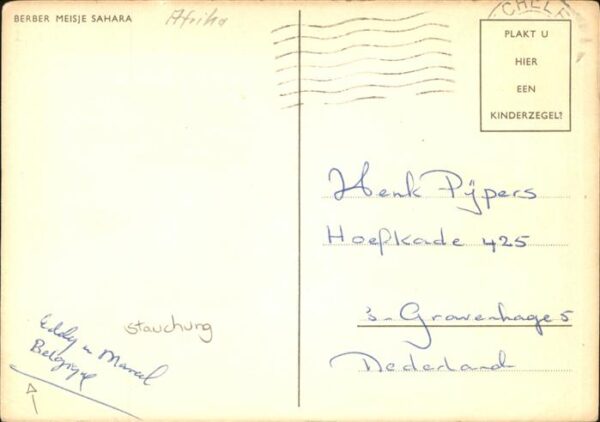 BERBER MEISJE SAHARA
Afrika
CHELE
PLAKT U
HIER
EEN
KINDERZEGEL?
Henk Pijpers
Hoefkade 425
s-Gravenhage 5
Nederland
stauchung
Eddy en Marcel
Belgique